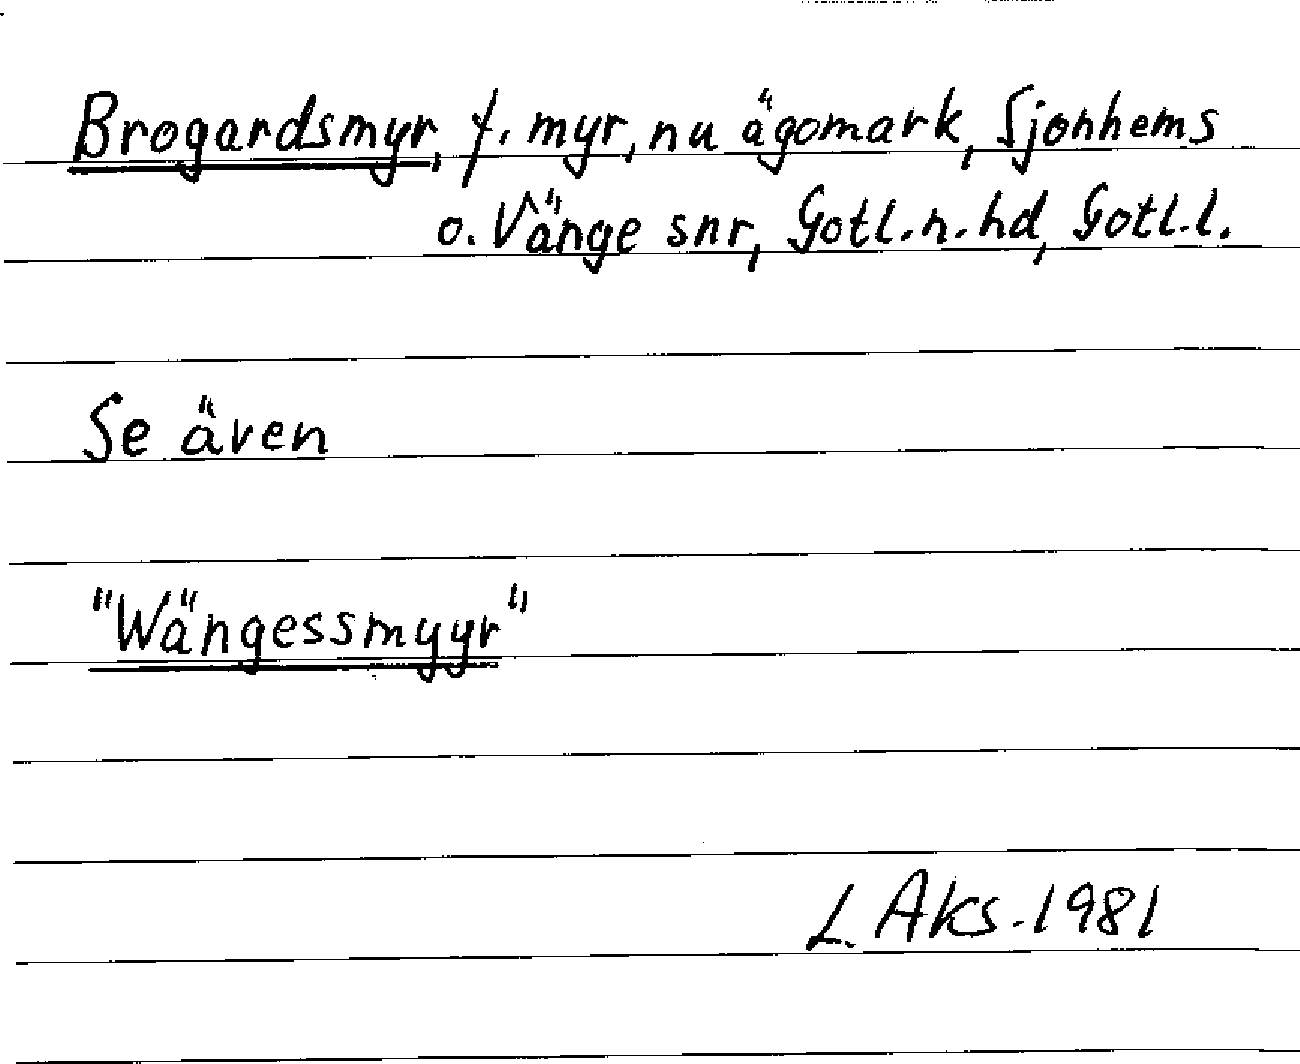 Brogardsmyr, f. myr, nu ägomark, Sjonhems
o. Vänge snr, Gotl.n.hd, Gotl.l.
Se även
"Wängessmyyr"
L. Aks. 1981